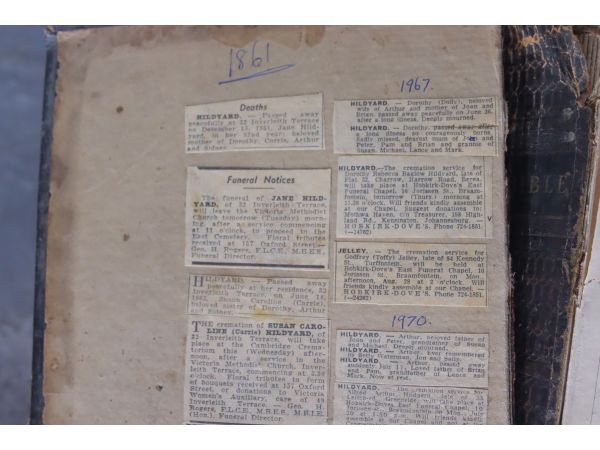 1861
Deaths
HILDYARD. — Passed away
peacefully at 32 Inverleith Terrace
on December 13, 1951, Jane Hild-
yard, in her 92nd year; beloved
mother of Dorothy, Carrie, Arthur
and Sidney.
Funeral Notices
The funeral of JANE HILD-
YARD, of 32 Inverleith Terrace,
will leave the Victoria Methodist
Church tomorrow (Tuesday) morn-
ing, after a service commencing
at 11 o'clock, to proceed to the
East Cemetery. Floral tributes
received at 157, Oxford Street. —
Geo. H. Rogers, F.L.C.E., M.B.E.S.
Funeral Director.
HILDYARD. — Passed away
peacefully at her residence, 32
Inverleith Terrace, on June 18,
Susan Caroline (Carrie),
beloved sister of Dorothy, Arthur
and Sidney.
THE cremation of SUSAN CARO-
LINE (Carrie) HILDYARD, of
32 Inverleith Terrace, will take
place at the Cambridge Crema-
torium this (Wednesday) after-
noon, after a service in the
Victoria Methodist Church, Inver-
leith Terrace, commencing at 2.30
o'clock. Floral tributes in form
of bouquets received at 157, Oxford
Street, or donations to Victoria
Women's Auxiliary, care of 49
Inverleith Terrace. — Geo. H.
Rogers, F.L.C.E., M.B.E.S., M.R.I.E.
(Hon.), Funeral Director.
1967.
HILDYARD. — Dorothy (Dolly), beloved
wife of Arthur and mother of Joan and
Brian, passed away peacefully on June 26,
after a long illness. Deeply mourned.
HILDYARD. — Dorothy, passed away after
a long illness so courageously borne.
Sadly missed, dearest mum of and
Peter, Pam and Brian and grannie of
Susan, Michael, Lance and Mark.
HILDYARD. — The cremation service for
Dorothy Rebecca Baglow Hildyard, late of
Flat 12, Charrow, Harrow Road, Berea,
will take place at Hobkirk-Dove's East
Funeral Chapel, 10 Jorissen St., Braam-
fontein, tomorrow (Thurs.) morning at
11.30 o'clock. Will friends kindly assemble
at our Chapel. Suggest donations to
Mothwa Haven, c/o Treasurer, 108 High-
land Rd., Kensington, Johannesburg. —
HOBKIRK-DOVE'S. Phone 724-1851.
—(14762)
V
JELLEY. — The cremation service for
Godfrey (Toffy) Jelley, late of 84 Kennedy
St., Turffontein, will be held at
Hobkirk-Dove's East Funeral Chapel, 10
Jorissen St., Braamfontein, on Mon.
aft., Aug. 28 at 2 o'clock. Will
friends kindly assemble at our Chapel. —
HOBKIRK-DOVE'S. Phone 724-1851.
—(24362)
1970.
HILDYARD. — Arthur, beloved father of
Joan and Peter, grandfather of Susan
and Michael. Deeply mourned.
HILDYARD. — Arthur. Ever remembered
by Betty Waterman, Jim and Sally.
HILDYARD. — Arthur, passed away
suddenly July 11. Loved father of Brian
and Pam, grandfather of Lance and
Mark. Now at rest.
HILDYARD. — The cremation service for
Arthur Hildyard, late of
Greenside, will take place at
Hobkirk-Dove's East Funeral Chapel, 10
Jorissen St., Braamfontein on
BLE